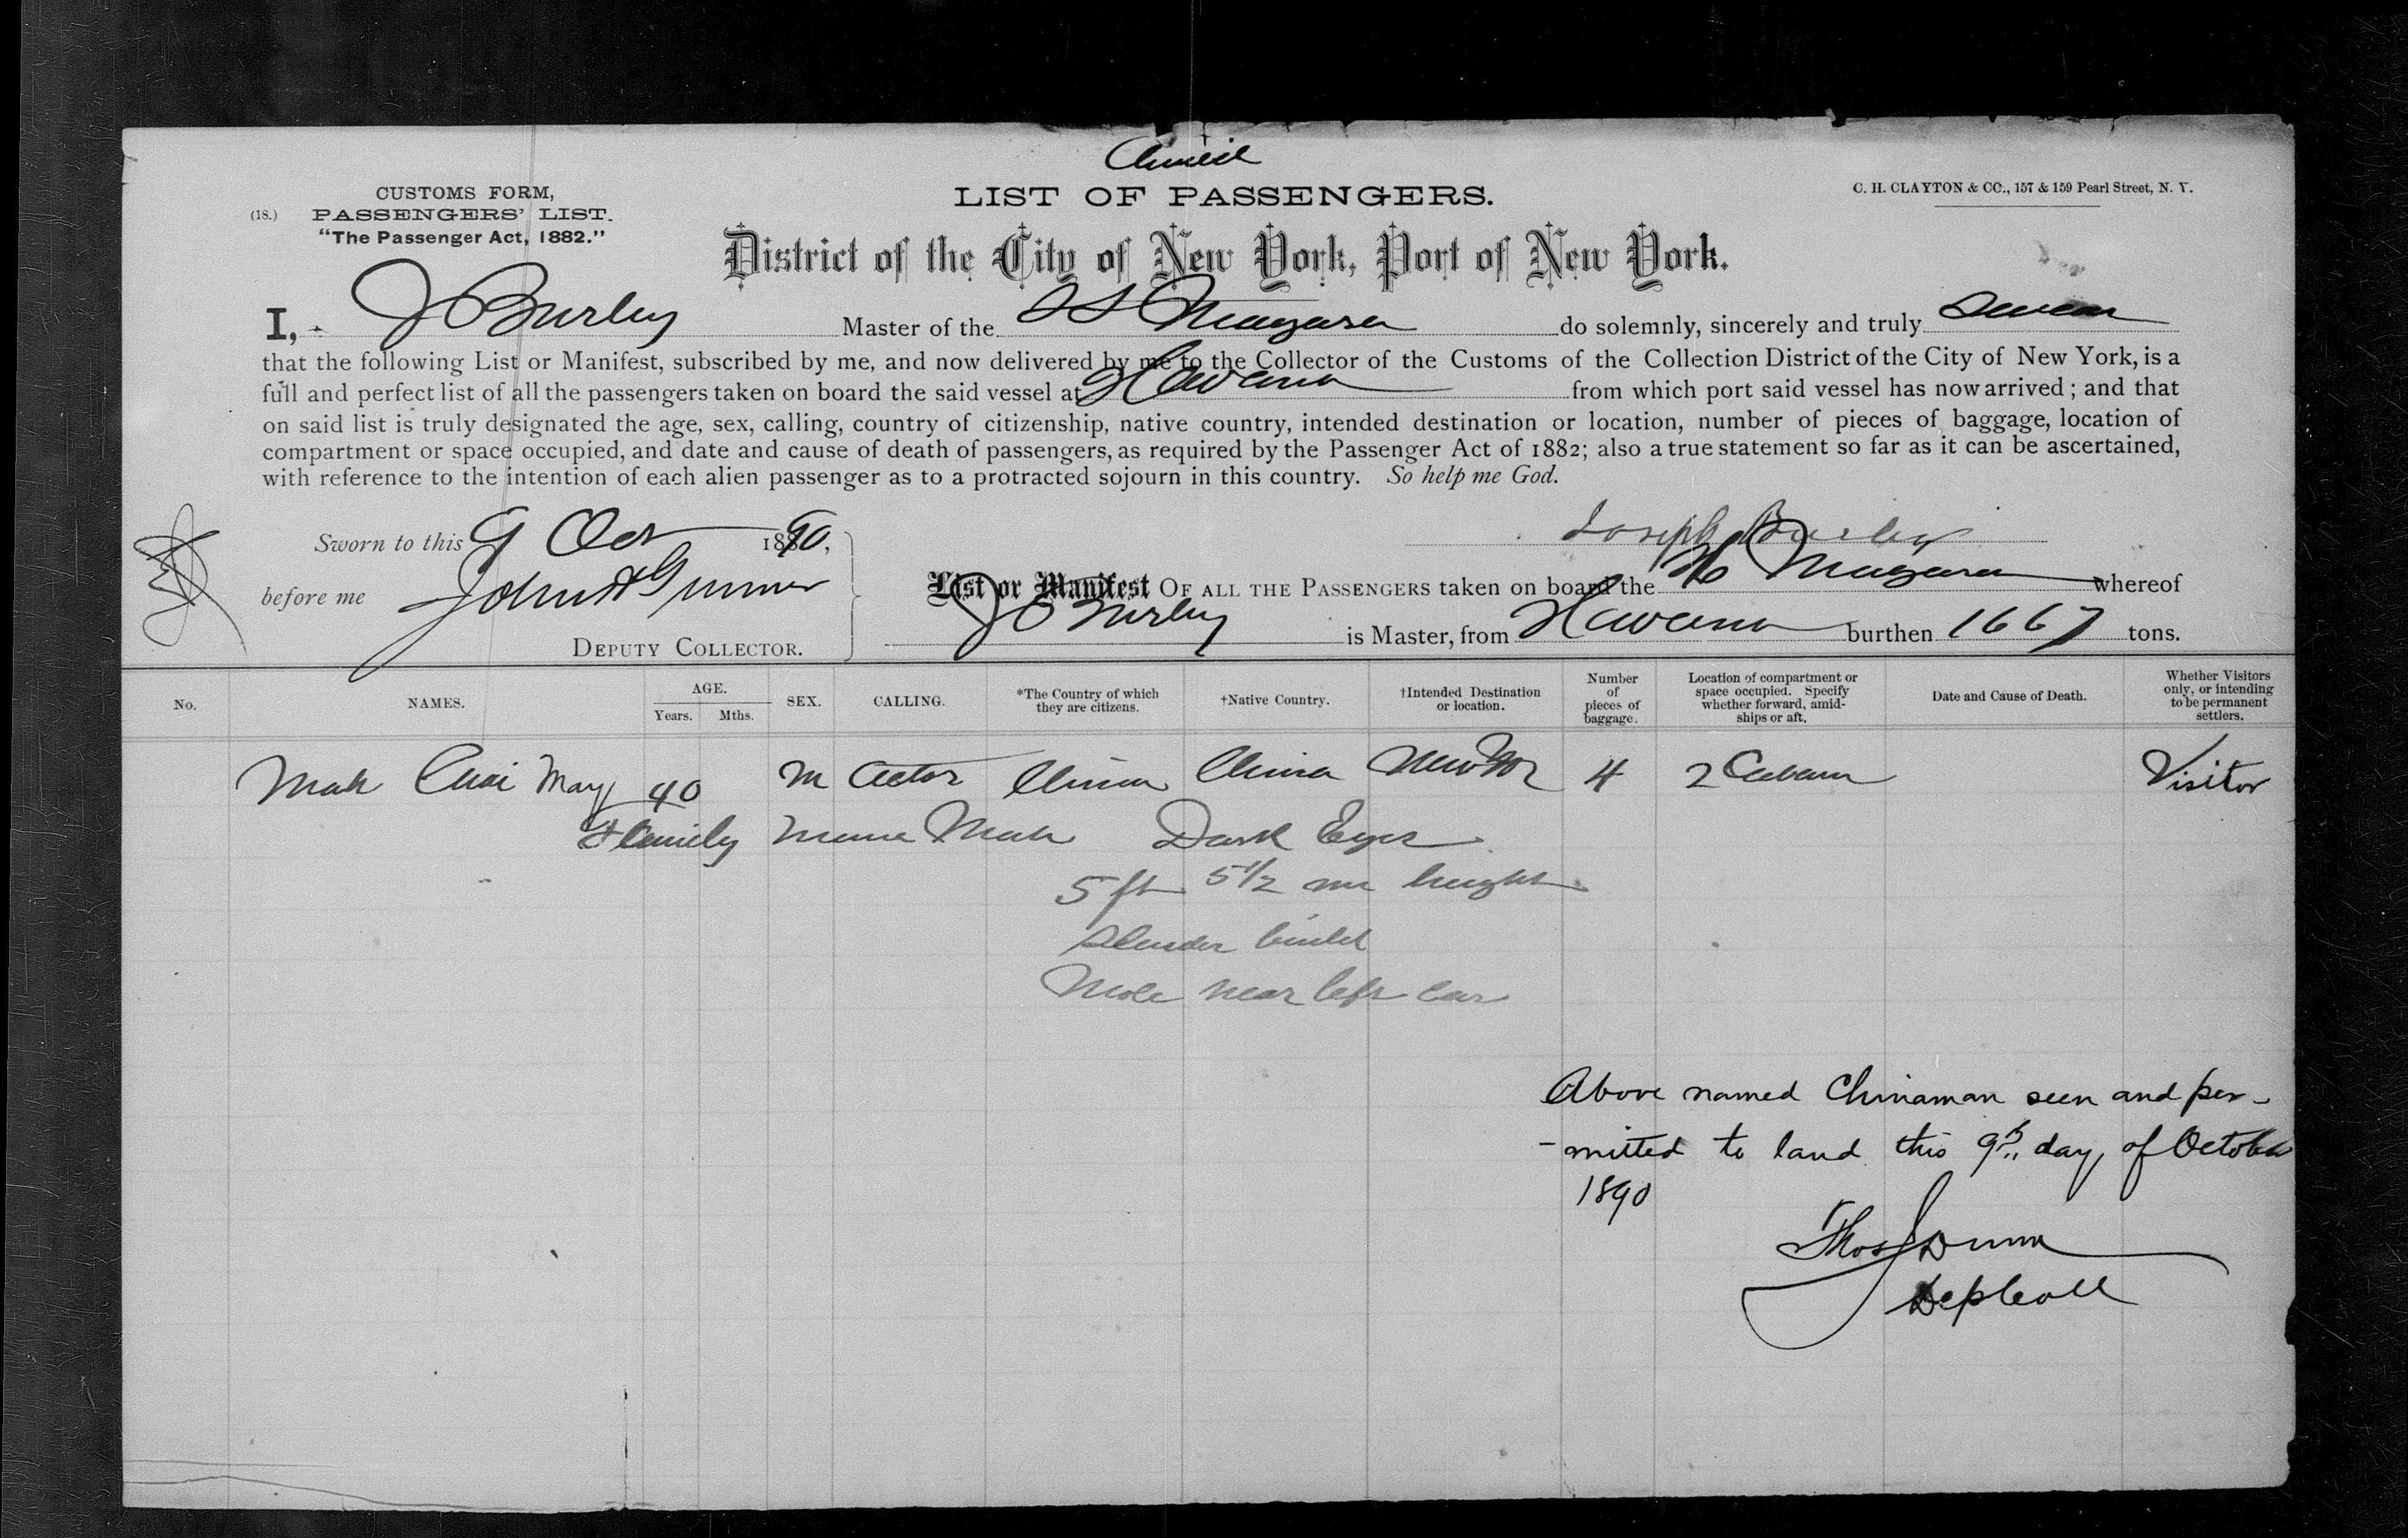 CUSTOMS FORM,
(18.) PASSENGERS' LIST.
"The Passenger Act, 1882."
LIST OF PASSENGERS.
C. H. CLAYTON & CO., 157 & 159 Pearl Street, N. Y.
District of the City of New York, Port of New York.
I, J Burley Master of the SS Niagara do solemnly, sincerely and truly swear
that the following List or Manifest, subscribed by me, and now delivered by me to the Collector of the Customs of the Collection District of the City of New York, is a
full and perfect list of all the passengers taken on board the said vessel at Havana from which port said vessel has now arrived; and that
on said list is truly designated the age, sex, calling, country of citizenship, native country, intended destination or location, number of pieces of baggage, location of
compartment or space occupied, and date and cause of death of passengers, as required by the Passenger Act of 1882; also a true statement so far as it can be ascertained,
with reference to the intention of each alien passenger as to a protracted sojourn in this country. So help me God.
Sworn to this 9 Oct 1890,
Joseph Burley
before me John Gunner
DEPUTY COLLECTOR.
List or Manifest OF ALL THE PASSENGERS taken on board the Niagara whereof
J Burley is Master, from Havana burthen 1667 tons.
No. NAMES. AGE. Years. Mths. SEX. CALLING. *The Country of which they are citizens. †Native Country. †Intended Destination or location. Number of pieces of baggage. Location of compartment or space occupied. Specify whether forward, amidships or aft. Date and Cause of Death. Whether Visitors only, or intending to be permanent settlers.
Mak Chai May 40 M Actor China China New Yor 4 2 Cabin Visitor
Family name Mak Dark Eyes
5 ft 5 1/2 height
Slender build
Mole near left ear
Above named Chinaman seen and per-
-mitted to land this 9th day of October
1890
Thos J Dunn
Dep Coll